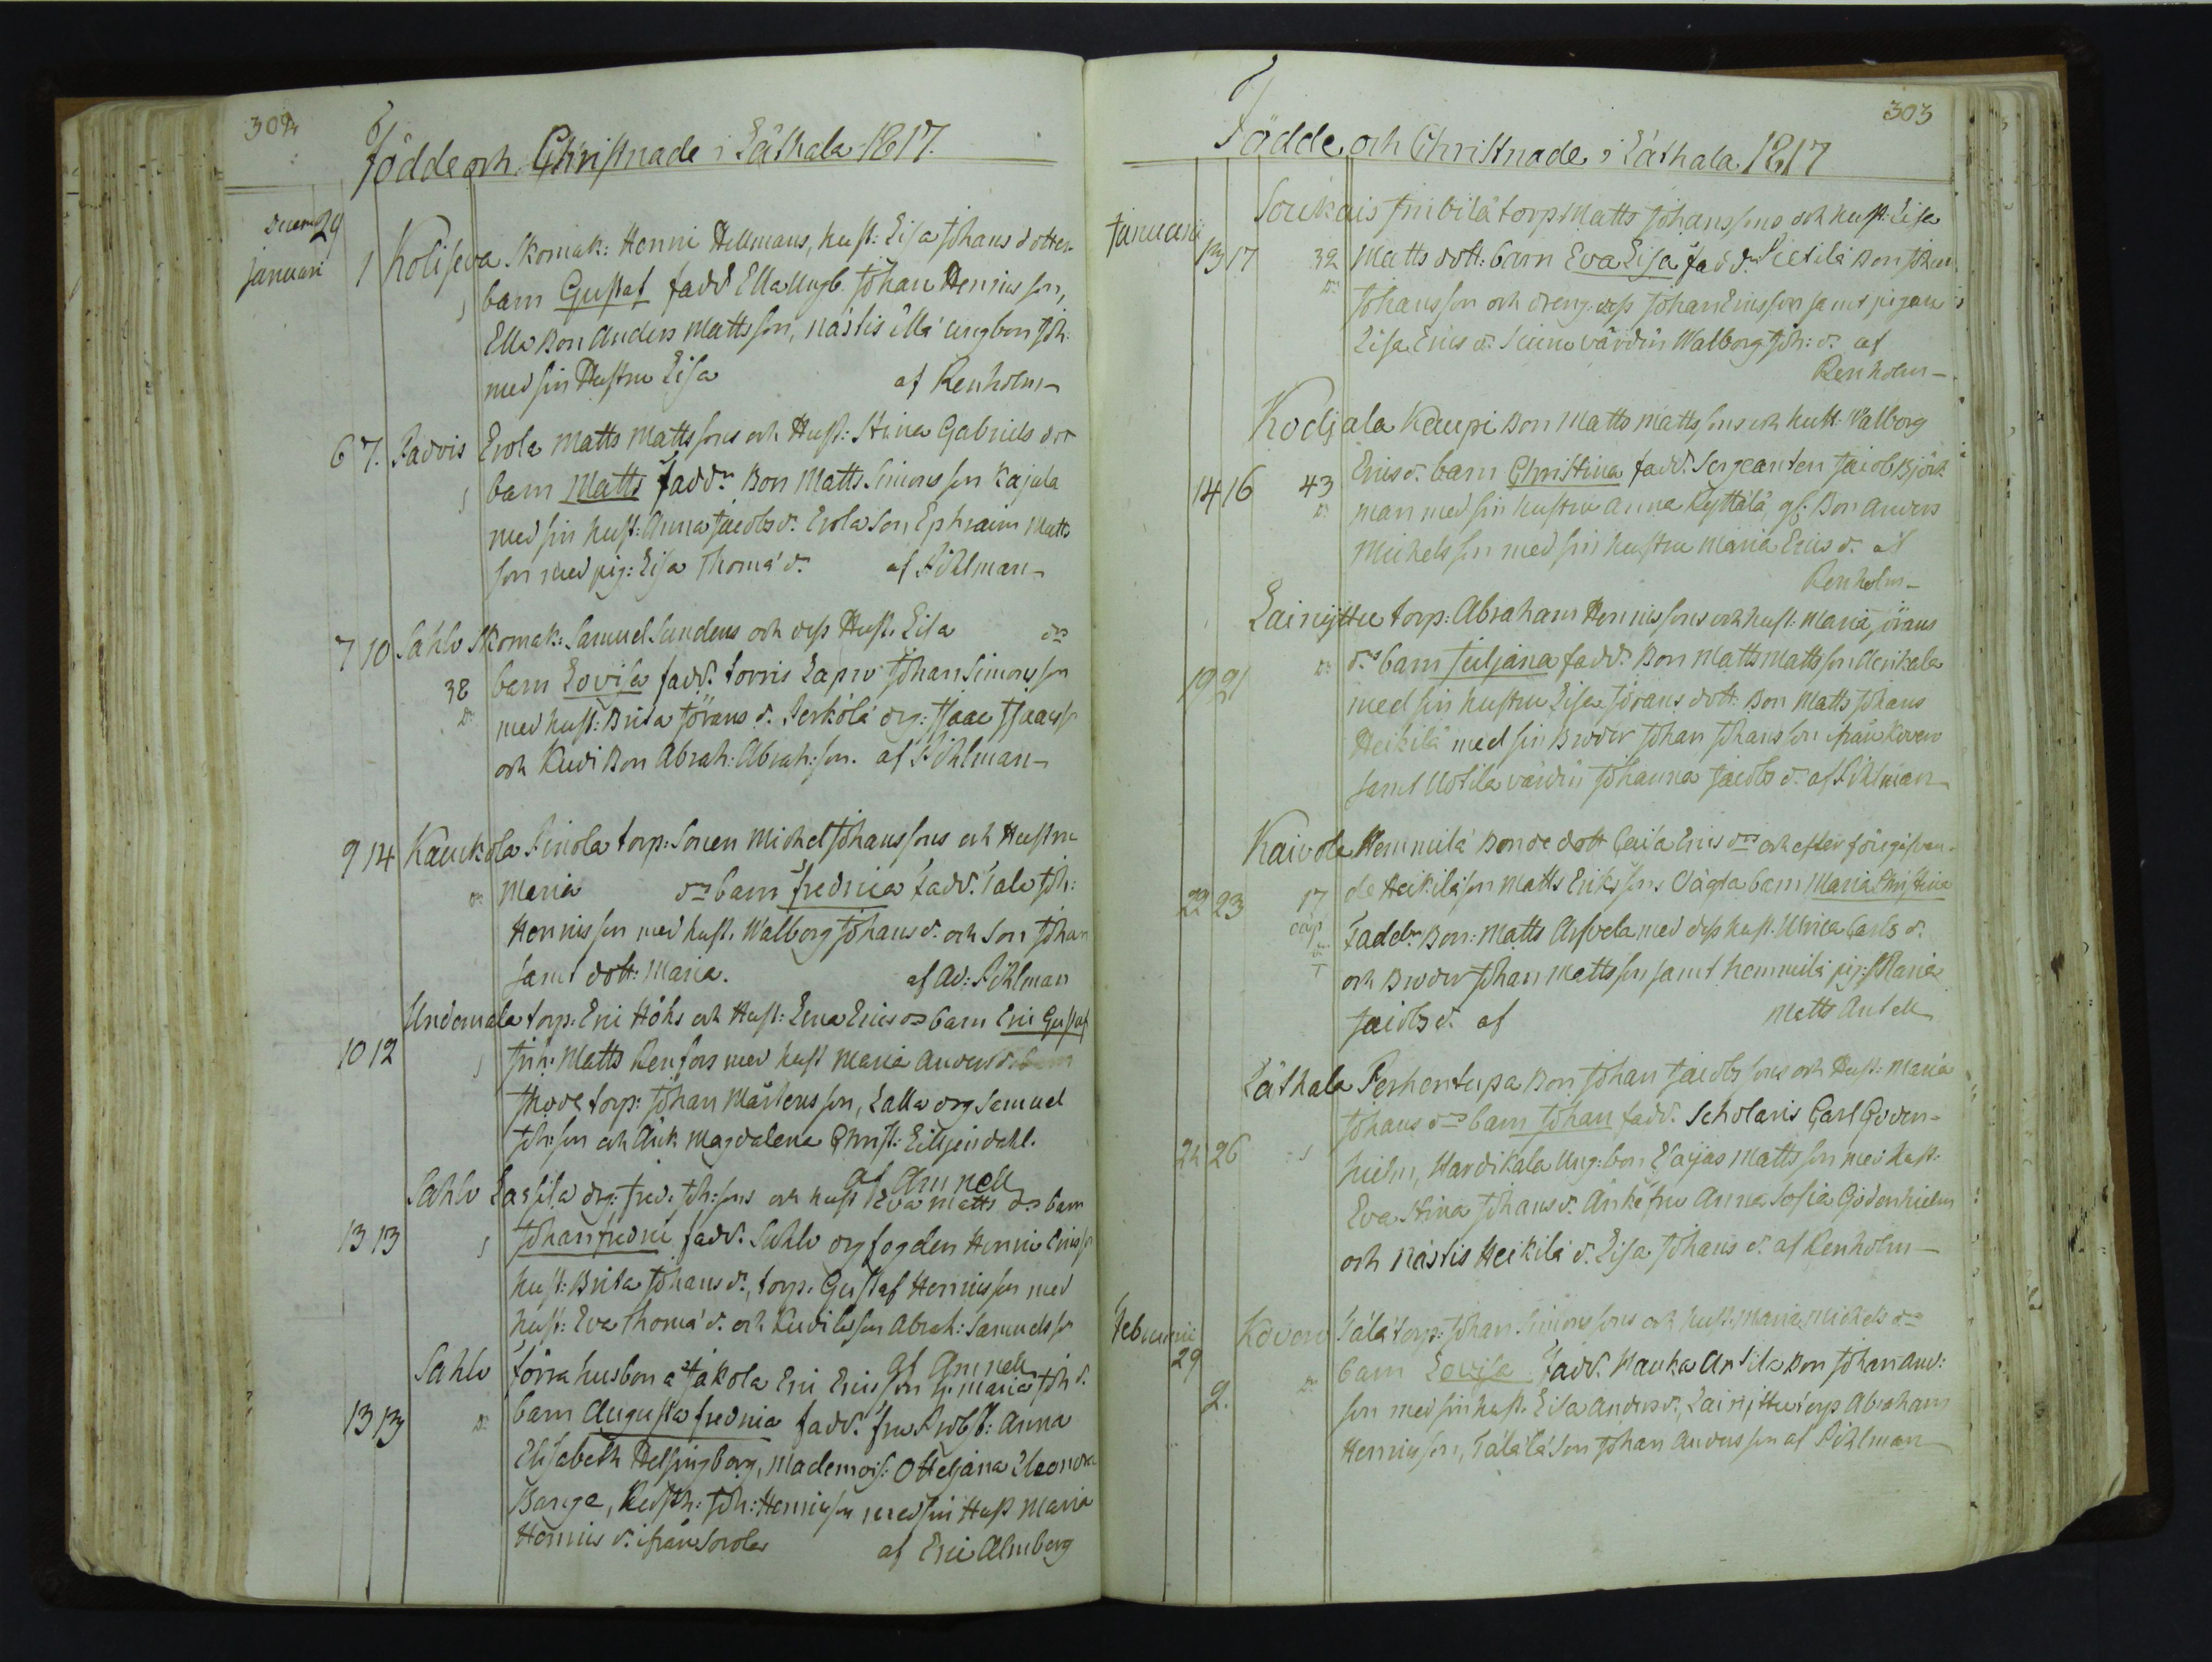 302
Födde och Christnade i Läthala 1817.
Decem 29
Januari 1 Kolisewa Skomak: Henric Hellmans, hust: Lisa Johans dotter
barn Gustaf fadd. Ella Ungb. Johan Henrics son,
Ella Bon Anders Matts son, nästis Ella ungbon Joh:
med sin Hustru Lisa af Renholm
6 7. Padvis Erola Matts Matts sons och Hust: Stina Gabriels dr
barn Matts faddr Bon Matts Simons son Kajala
med sin hust: Anna Jacobs d. Erola Son, Ephraim Matts
son med pig: Lisa Thomæ d. af Pihlman
7 10 Sahlo Skomak: Samuel Sundens och dess Hust. Lisa drs
38 barn Lovisa fadd. Torris Lapio Johan Simons son
med hust: Brita Jörans d. Perkölä drg: Isaac Isaacss
och Kuivi Bon Abrah: Abrah: son. af Pihlman
9 14 Kauckola Pinola torp: Sonen Michel Johans sons och Hustru
Maria drs barn Fredrica Fadd. Talo Joh:
Henrics son med hust. Walborg Johans d. och Son Johan
samt dott: Maria. af Ad: Pihlman
Undamala torp: Eric Höks och Hust: Lena Erics drs barn Eric Gustaf
10 12 Matts Renfors med hust Maria Anders d.
torp: Johan Mårtens son, Lalla drg Samuel
Joh: son och Änk Magdalena Christ:
af Amnell
Sahlo Lassila drg: Fred: Joh: sons och hust Eva Matts drs barn
13 13 Johan Fredric fadd. Sahlo drg fogden Henric Erics s
hust: Brita Johans d., torp. Gustaf Henrics son med
hust: Eva Thomæ d. och Kuivila son Abrah: Samuels s
af Amnell
Sahlo förra husbon a Jakola Eric Erics son h. Maria Joh d.
13 13 barn Augusta Fredrica fadd. fru Probst: Anna
Elisabeth Helsingberg, Mademois: Otteljana Eleonora
Bange, Joh: Henrics son med sin Hust Maria
Henrics d. ifrån Sorola af Eric Almberg
303
Födde och Christnade i Läthala 1817
Januari Soukais torp Matts Johans sons och hust: Lisa
13 17 32 Matts dott: barn Eva Lisa faddr Pietilä Bon Johan
Johans son och dreng: dess Johan Erics son samt pigan
Lisa Erics d. värdin Walborg Joh: d. af
Renholm
Kodjala Kaupi Bon Matts Matts sons och hust: Walborg
Erics d. barn Christina fadd. Sergeanten Jacob Björk
14 16 43 man med sin hustru Anna Kyttälä, Bon Anders
Michels son med sin hustru Maria Erics d. af
Renholm
Lainjttu torp: Abraham Henrics sons och hust: Maria Jörans
19 21 drs barn Juljana fadd. Bon Matts Matts son Unikala
med sin hustru Lisa Jörans dott: Bon Matts Johans
Heikilä med sin Broder Johan Johans son ifrån Kovero
samt Uotila värdin Johanna Jacobs d. af Pihlman
Kaivola Hemmilä Bonde dott Caisa Erics drs och efter föregifvan-
22 23 17 de Heikilä son Matts Erikssons Oägta barn Maria Christina
Faddr Bon: Matts Arfvela med dess hust. Ulrica Carls d.
och Broder Johan Matts son samt Hemmilä pig: Maria
Jacobs d. af Matts Antell
Läthala Perhontupa Bon Johan Jacobs sons och Hust: Maria
Johans drs barn Johan fadd. Scholaris Carl Goden-
24 26 hielm, Hardikala Ung: bon Elajas Matts son med hust.
Eva Stina Johans d. Änke fru Anna Sofia Godenhielm
och nästis Heikilä d. Lisa Johans d. af Renholm
Februarii Kovero Tälä torp: Johan Simons sons och hust: Maria Michels drs
29 barn Lovisa Fadd. Hauka Antila Bon Johan And:
2. son med sin hust. Lisa Anders d., Lainjttu torp Abraham
Henrics son, Tälälä Son Johan Anders son af Pihlman